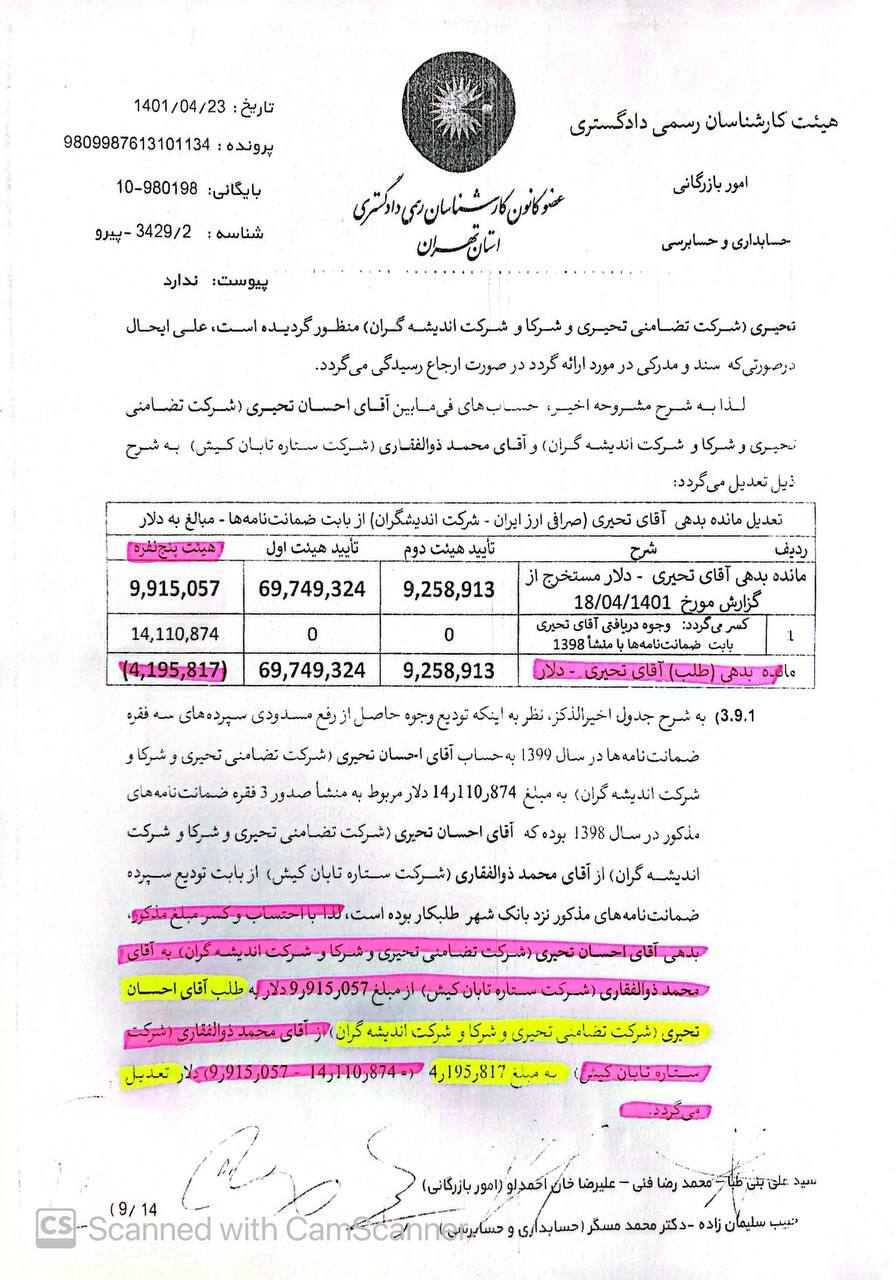 هیئت کارشناسان رسمی دادگستری
امور بازرگانی
حسابداری و حسابرسی
عضو کانون کارشناسان رسمی دادگستری
استان تهران
تاریخ: 1401/04/23
پرونده: 9809987613101134
بایگانی: 980198-10
شناسه: 3429/2 -پیرو
پیوست: ندارد
تحیری (شرکت تضامنی تحیری و شرکا و شرکت اندیشه گران) منظور گردیده است، علی ایحال
درصورتی‌که سند و مدرکی در مورد ارائه گردد در صورت ارجاع رسیدگی می‌گردد.
لذا به شرح مشروحه اخیر، حساب‌های فی‌مابین آقای احسان تحیری (شرکت تضامنی
تحیری و شرکا و شرکت اندیشه گران) و آقای محمد ذوالفقاری (شرکت ستاره تابان کیش) به شرح
ذیل تعدیل می‌گردد:
تعدیل مانده بدهی آقای تحیری (صرافی ارز ایران - شرکت اندیشگران) از بابت ضمانت‌نامه‌ها - مبالغ به دلار
ردیف شرح تأیید هیئت دوم تأیید هیئت اول هیئت پنج‌نفره
مانده بدهی آقای تحیری - دلار مستخرج از گزارش مورخ 18/04/1401 9,258,913 69,749,324 9,915,057
1 کسر می‌گردد: وجوه دریافتی آقای تحیری بابت ضمانت‌نامه‌ها با منشأ 1398 0 0 14,110,874
مانده بدهی (طلب) آقای تحیری - دلار 9,258,913 69,749,324 (4,195,817)
3.9.1) به شرح جدول اخیرالذکر، نظر به اینکه تودیع وجوه حاصل از رفع مسدودی سپرده‌های سه فقره
ضمانت‌نامه‌ها در سال 1399 به حساب آقای احسان تحیری (شرکت تضامنی تحیری و شرکا و
شرکت اندیشه گران) به مبلغ 14ر110ر874 دلار مربوط به منشأ صدور 3 فقره ضمانت‌نامه‌های
مذکور در سال 1398 بوده که آقای احسان تحیری (شرکت تضامنی تحیری و شرکا و شرکت
اندیشه گران) از آقای محمد ذوالفقاری (شرکت ستاره تابان کیش) از بابت تودیع سپرده
ضمانت‌نامه‌های مذکور نزد بانک شهر طلبکار بوده است، لذا با احتساب و کسر مبلغ مذکور،
بدهی آقای احسان تحیری (شرکت تضامنی تحیری و شرکا و شرکت اندیشه گران) به آقای
محمد ذوالفقاری (شرکت ستاره تابان کیش) از مبلغ 9ر915ر057 دلار به طلب آقای احسان
تحیری (شرکت تضامنی تحیری و شرکا و شرکت اندیشه گران) از آقای محمد ذوالفقاری (شرکت
ستاره تابان کیش) به مبلغ 4ر195ر817 (= 14ر110ر874 - 9ر915ر057) دلار تعدیل
می‌گردد.
سید علی بنی طبا – محمد رضا فنی – علیرضا خان احمدلو (امور بازرگانی)
حبیب سلیمان زاده – دکتر محمد مسگر (حسابداری و حسابرسی)
(9/ 14
CS Scanned with CamScanner